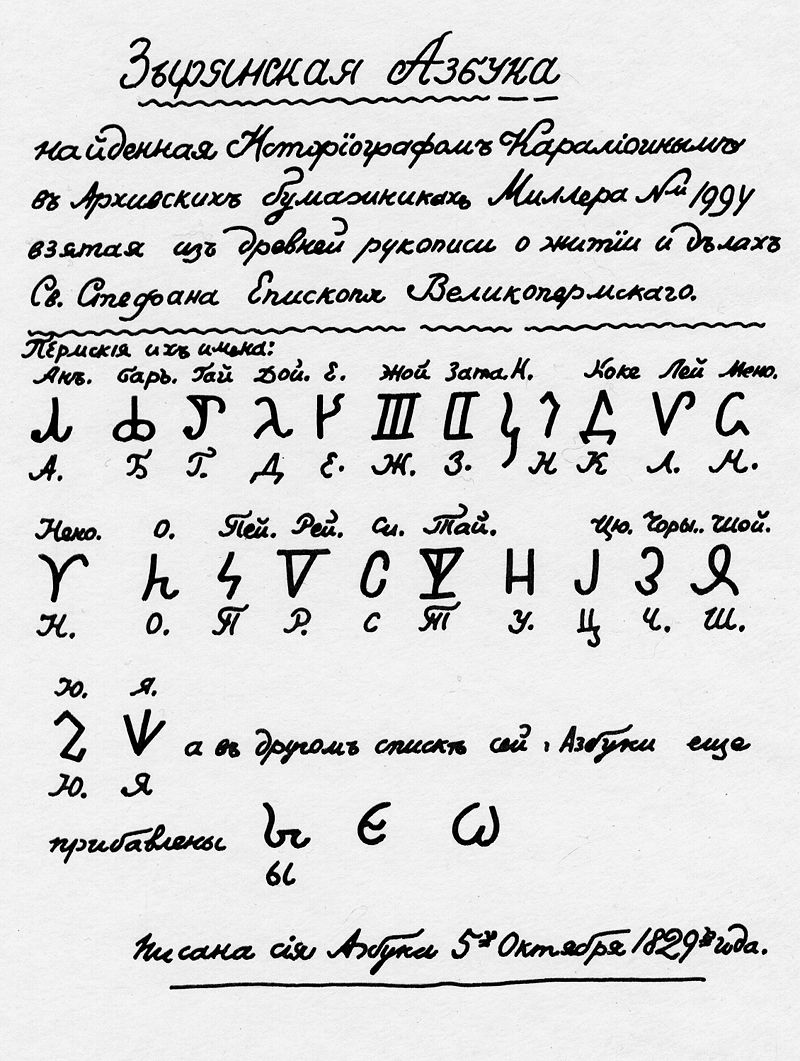 Зырянская Азбука
найденная Исторіографомъ Карамзинымъ
въ Архивскихъ бумажникахъ Миллера №й 199
взятая изъ древней рукописи о житіи и дѣлахъ
Св. Стефана Епископа Великопермскаго.
Пермскія ихъ имена:
Анъ. Баръ. Гай Дой. Е. Жой Зата. И. Коке Лей Мено.
А. Б Г. Д Е. Ж. З. И К Л. М.
Нено. О. Пей. Рей. Си. Тай. Цю. Чоры.. Шой.
Н. О. П Р. С Т У. Ц Ч. Ш.
Ю. Я.
а въ другомъ спискѣ сей Азбуки еще
Ю. Я
прибавлены
Ы
Писана сія Азбуки 5 Октября 1829 года.